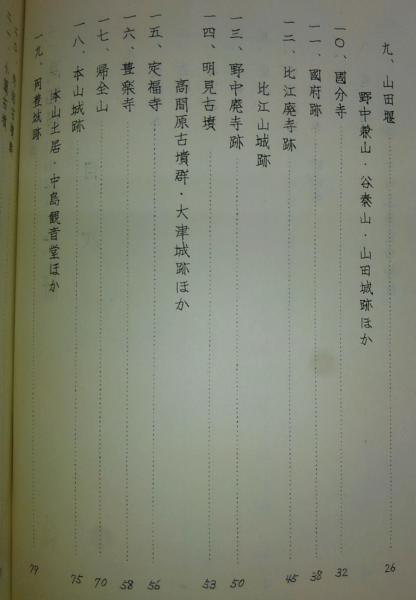 九、山田堰 26
野中兼山・谷秦山・山田城跡ほか
一〇、國分寺 32
一一、國府跡 38
一二、比江廃寺跡 45
比江山城跡
一三、野中廃寺跡 50
一四、明見古墳 53
高間原古墳群・大津城跡ほか
一五、定福寺 56
一六、豊楽寺 58
一七、帰全山 70
一八、本山城跡 75
本山土居・中島観音堂ほか
一九、阿波城跡 79